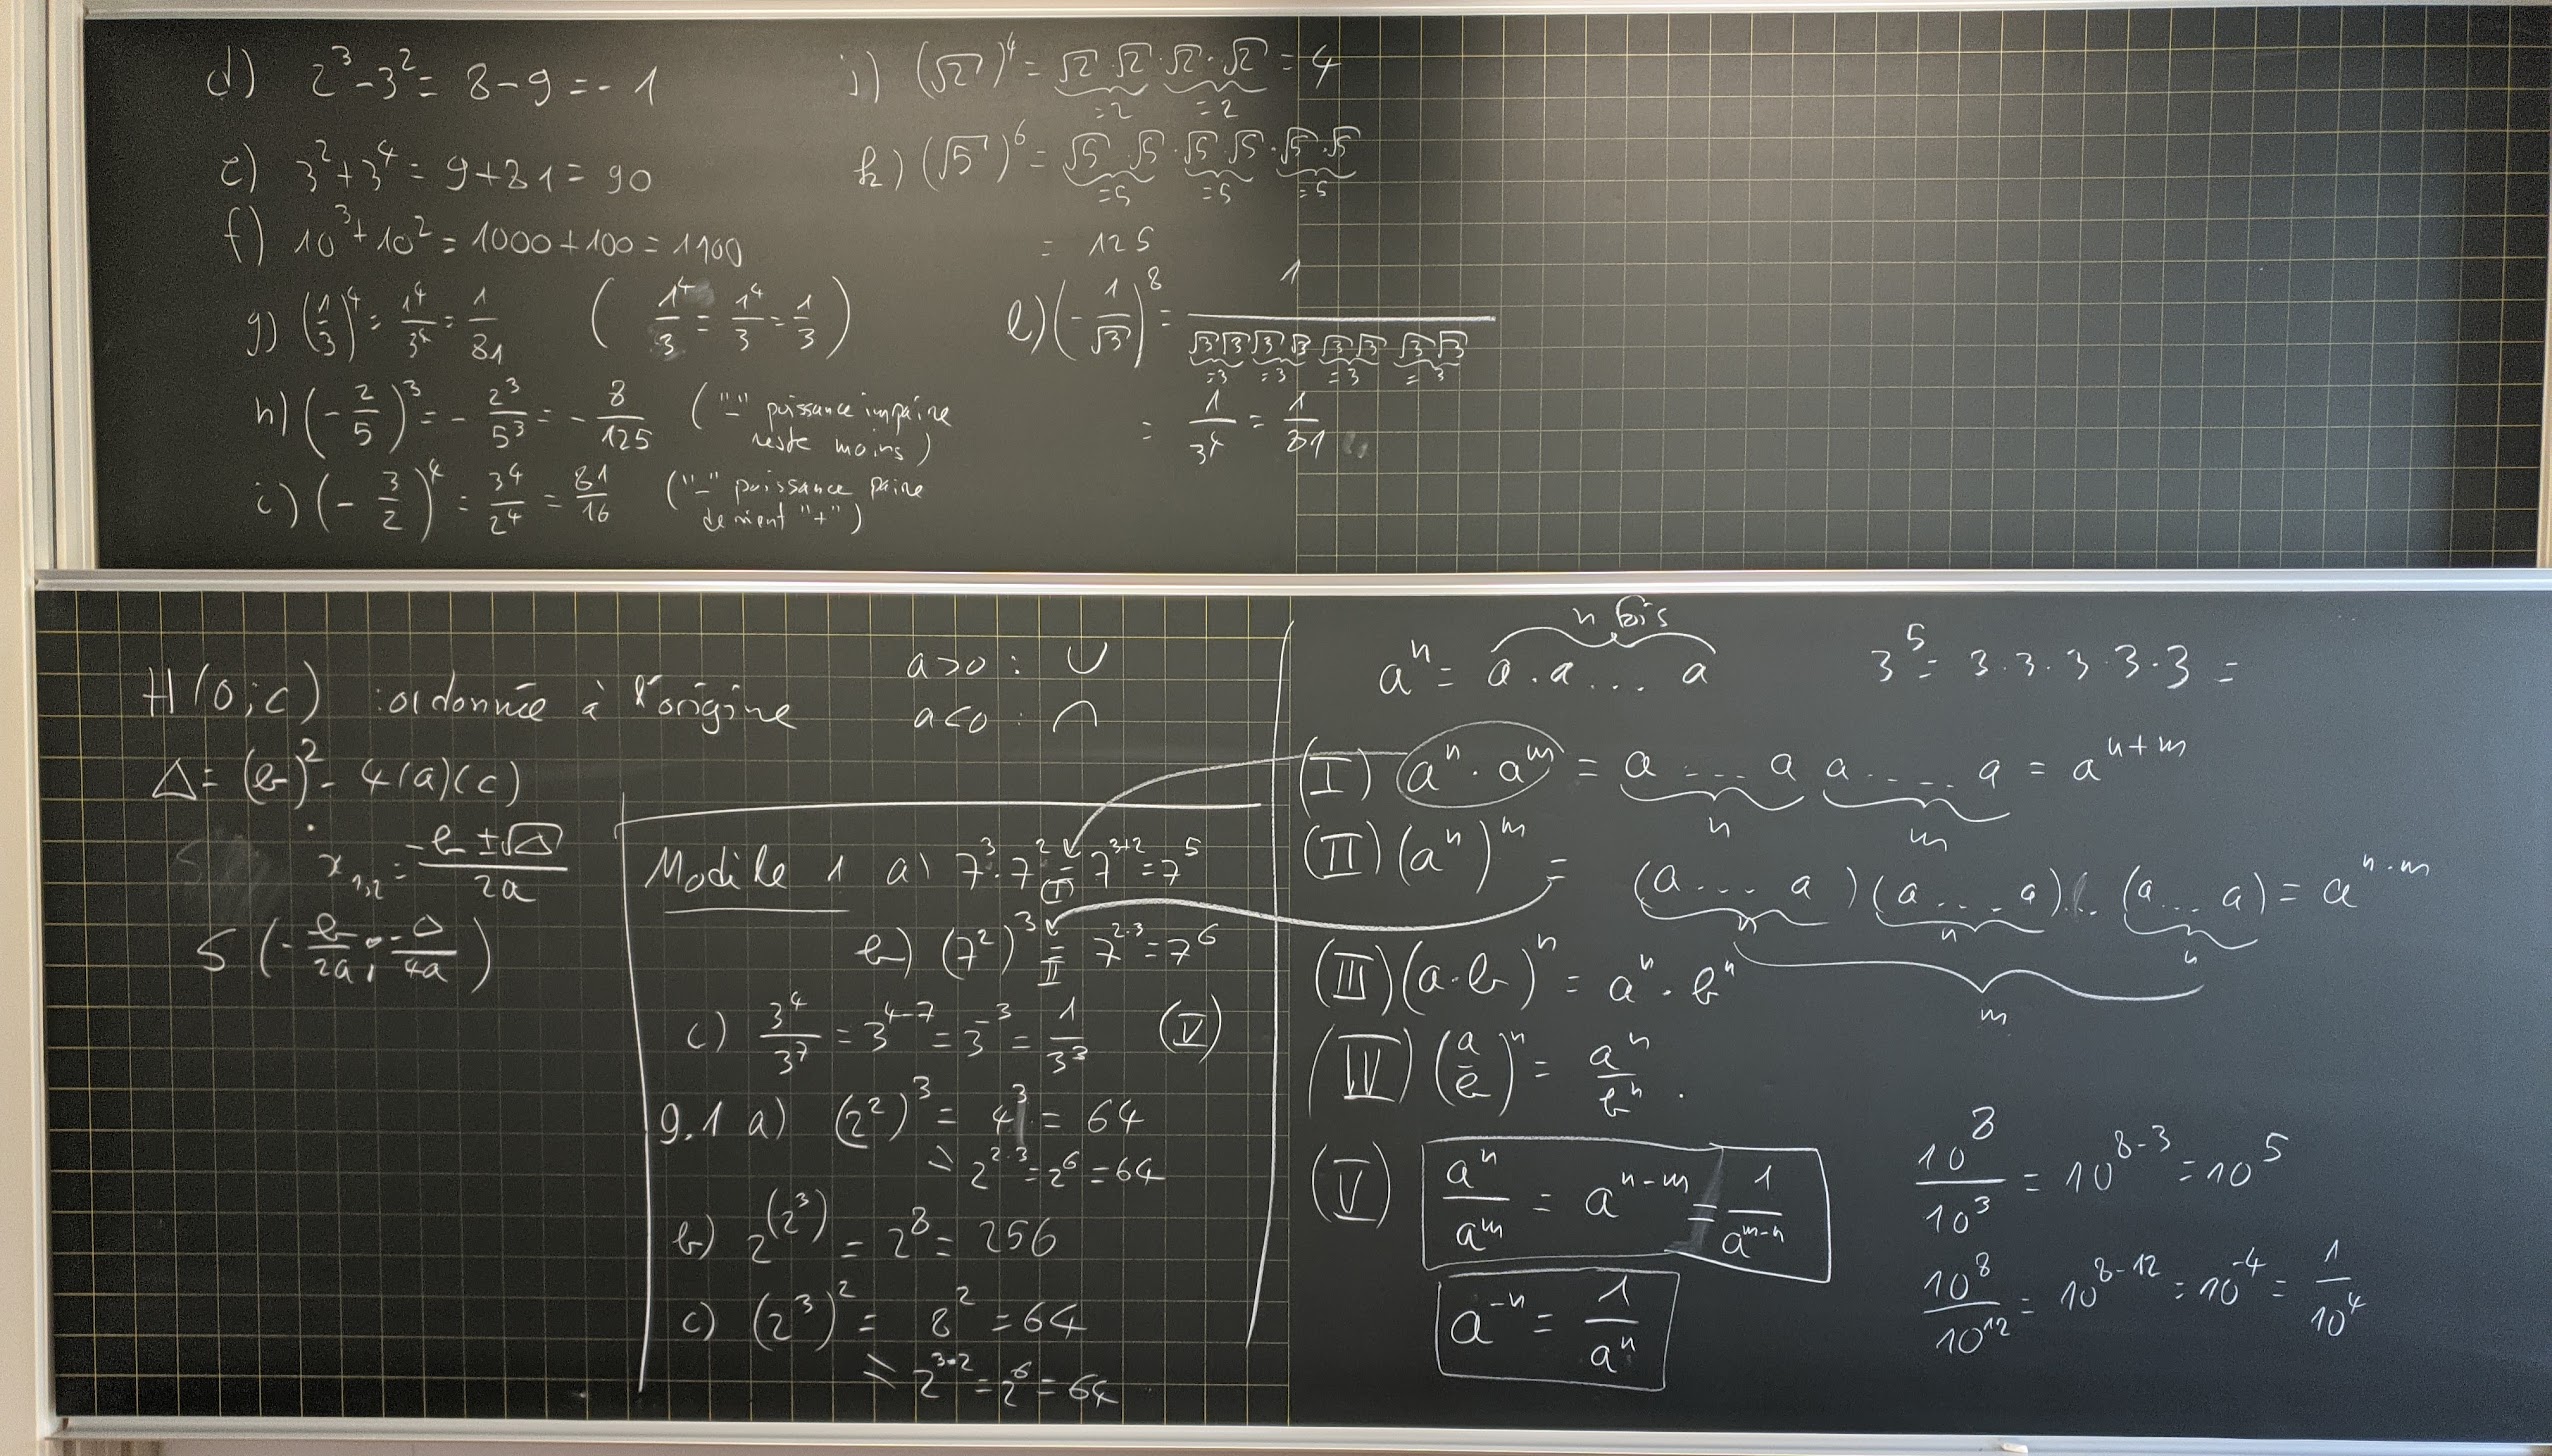 d) 2³ - 3² = 8 - 9 = - 1
e) 3² + 3⁴ = 9 + 81 = 90
f) 10³ + 10² = 1000 + 100 = 1100
g) (1/3)⁴ = 1⁴/3⁴ = 1/81 ( 1⁴/3 = 1⁴/3 = 1/3 )
h) (- 2/5)³ = - 2³/5³ = - 8/125 ("-" puissance impaire
reste moins)
i) (- 3/2)⁴ = 3⁴/2⁴ = 81/16 ("-" puissance paire
devient "+")
j) (√2)⁴ = √2 · √2 · √2 · √2 = 4
=2 =2
k) (√5)⁶ = √5 · √5 · √5 · √5 · √5 · √5
=5 =5 =5
= 125
l) (- 1/√3)⁸ = 1/(√3 √3 √3 √3 √3 √3 √3 √3)
=3 =3 =3 =3
= 1/3⁴ = 1/81
H(0;c) : ordonnée à l'origine
a>0 : ∪
a<0 : ∩
Δ = (b)² - 4(a)(c)
x₁,₂ = (-b ± √Δ)/2a
S (- b/2a ; - Δ/4a)
Modèle 1 a) 7³ · 7² = 7³⁺² = 7⁵
(I)
b) (7²)³ = 7²·³ = 7⁶
II
c) 3⁴/3⁷ = 3⁴⁻⁷ = 3⁻³ = 1/3³ (V)
9.1 a) (2²)³ = 4³ = 64
= 2²·³ = 2⁶ = 64
b) 2^(2³) = 2⁸ = 256
c) (2³)² = 8² = 64
= 2³·² = 2⁶ = 64
n fois
aⁿ = a · a ... a
3⁵ = 3 · 3 · 3 · 3 · 3 =
(I) aⁿ · aᵐ = a ... a a ... a = aⁿ⁺ᵐ
n m
(II) (aⁿ)ᵐ = (a ... a)(a ... a) ... (a ... a) = aⁿ·ᵐ
n n n
m
(III) (a · b)ⁿ = aⁿ · bⁿ
(IV) (a/b)ⁿ = aⁿ/bⁿ .
(V) aⁿ/aᵐ = aⁿ⁻ᵐ = 1/aᵐ⁻ⁿ
a⁻ⁿ = 1/aⁿ
10⁸/10³ = 10⁸⁻³ = 10⁵
10⁸/10¹² = 10⁸⁻¹² = 10⁻⁴ = 1/10⁴